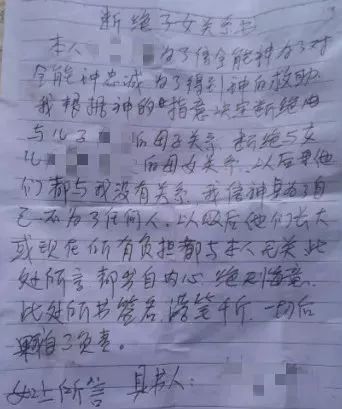 断绝子女关系书
本人 为了信全能神为了对
全能神忠诚为了得到神的救助
我根据神的旨意决定断绝
与儿子 的母子关系,断绝与女
儿 的母女关系,以后 他
们都与我没有关系,我信神 为了自
己不为了任何人,以 后他们长大
或现在所有负担都与本人无关,此
处所言都出自内心,绝 .
此处所书签名,落笔千斤,一切后
果自己负责。
以上所言 具书人: